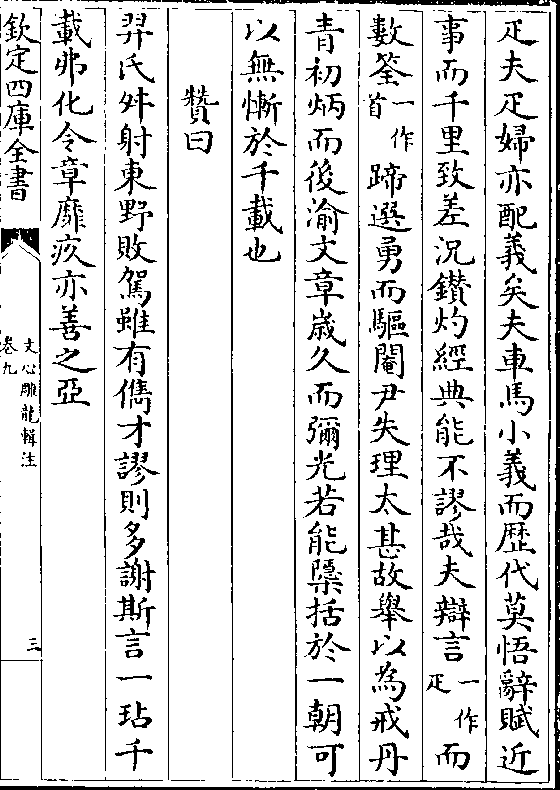 疋夫疋婦亦配義矣夫車馬小義而歴代莫悟辭賦近
事而千里致差況鑽灼經典能不謬哉夫辯言一作疋而
數筌一作首蹄選勇而驅閹尹失理太甚故舉以為戒丹
青初炳而後渝文章歳久而彌光若能檃括於一朝可
以無慚於千載也
贊曰
羿氏舛射東野敗駕雖有儁才謬則多謝斯言一玷千
載弗化令章靡疚亦善之亞
欽定四庫全書
文心雕龍輯注
卷九
三